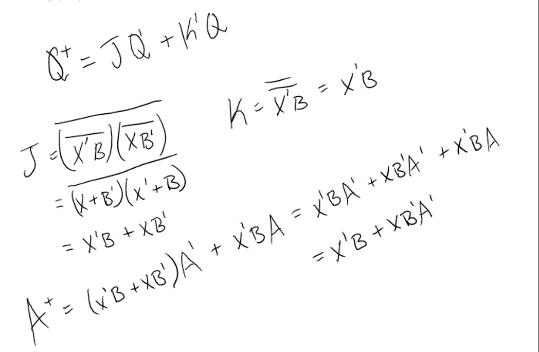 Q⁺ = JQ' + K'Q
J = \overline{(\overline{X'B})(\overline{XB'})}
= \overline{(X+B')(X'+B)}
= X'B + XB'
K = \overline{\overline{X'B}} = X'B
A⁺ = (X'B + XB')A' + X'BA = X'BA' + XB'A' + X'BA
= X'B + XB'A'